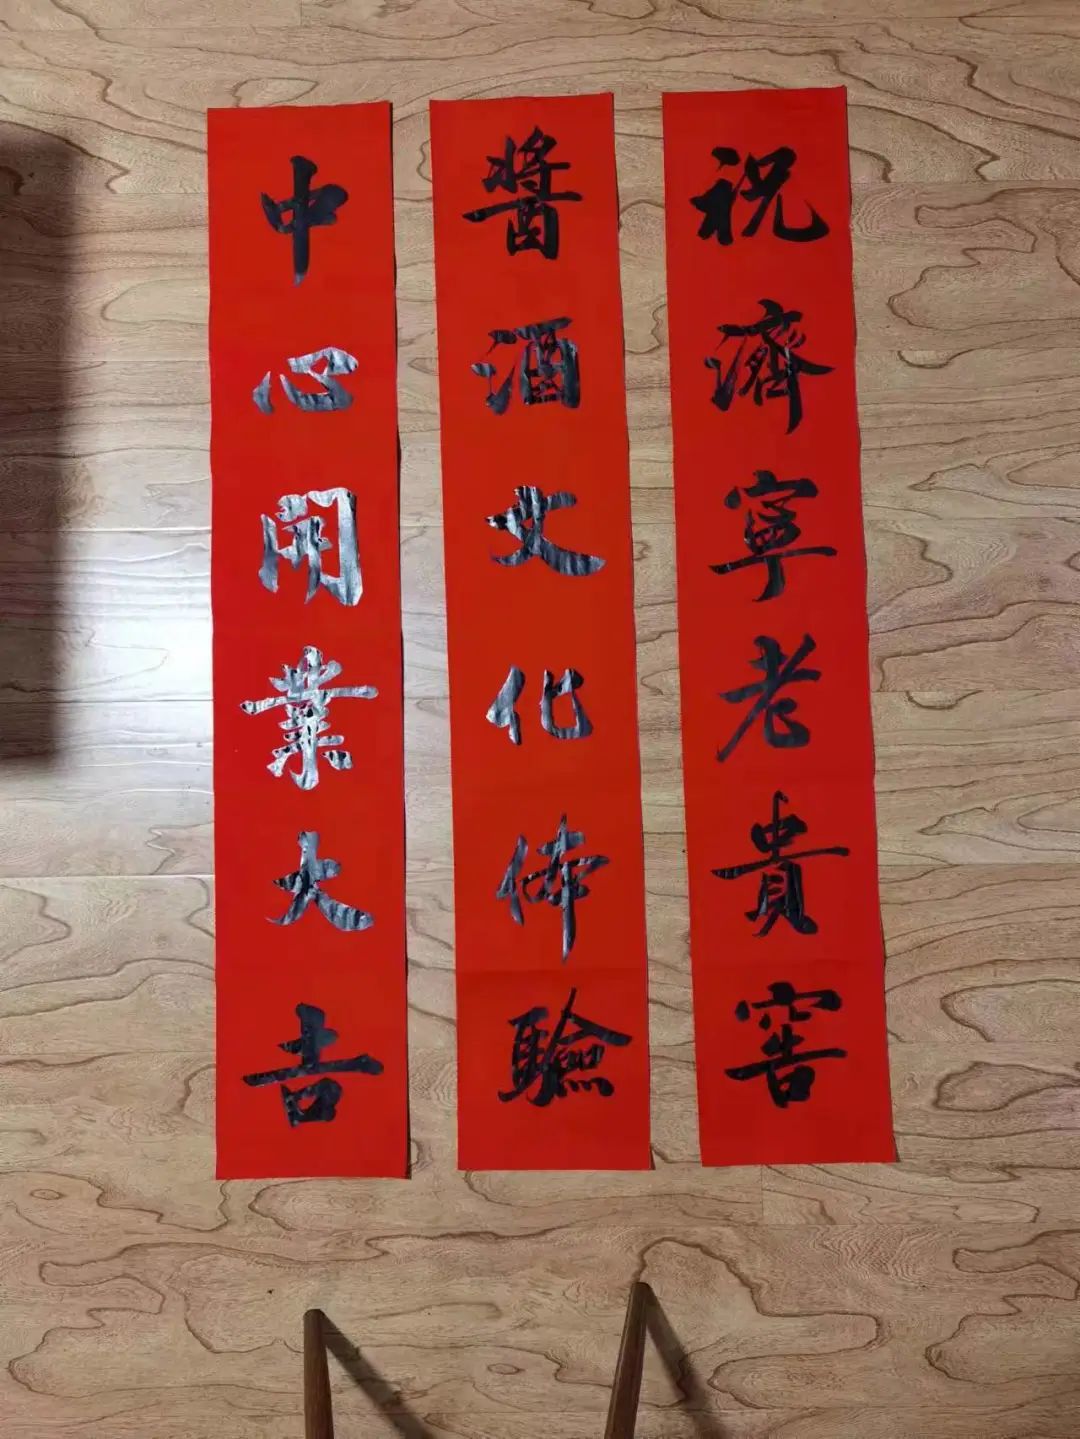 祝濟寧老貴窖
醬酒文化体驗
中心開業大吉